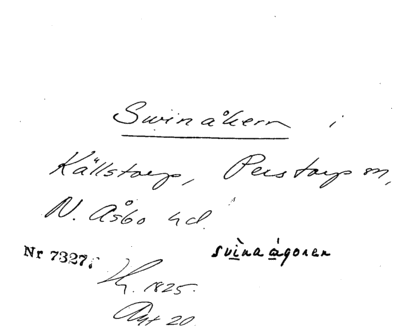 Svinåkern i
Källstorp, Perstorp sn,
N. Åsbo hd.
Nr 7327. svìnaágoren
H. 1825.
Akt 20